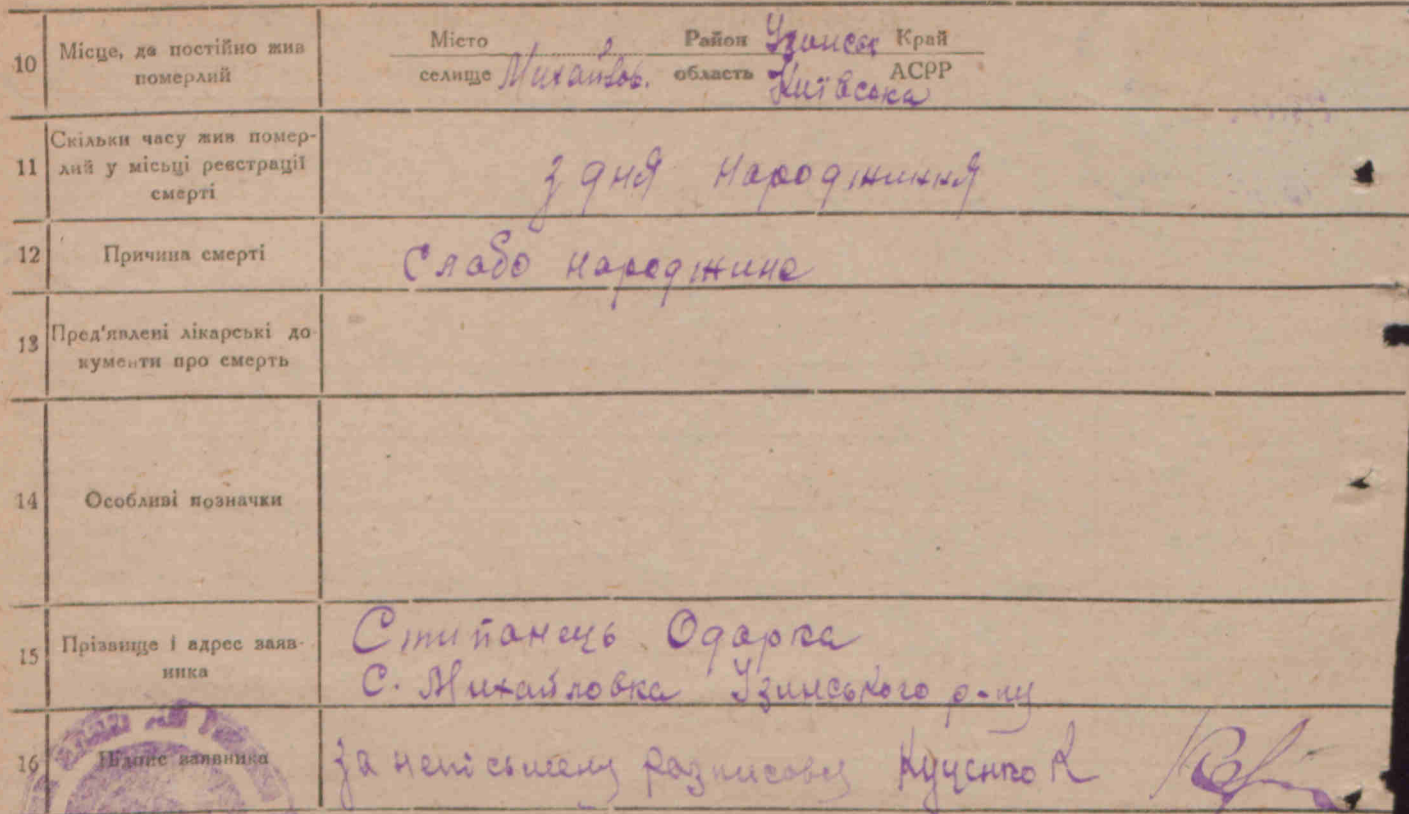 10 Місце, де постійно жив померлий
Місто Район Узинськ Край
селище Михайлов. область Київська АСРР
11 Скільки часу жив помер-
лий у місьці реєстрації
смерті
З дня народжиння
12 Причина смерті
Слабо народжина
13 Пред'явлені лікарські до
кументи про смерть
14 Особливі позначки
15 Прізвище і адрес заяв-
ника
Стипанець Одарка
С. Михайловка Узинського р-ну
16 Підпис заявника
за неписьмену розписовсь Куценко К